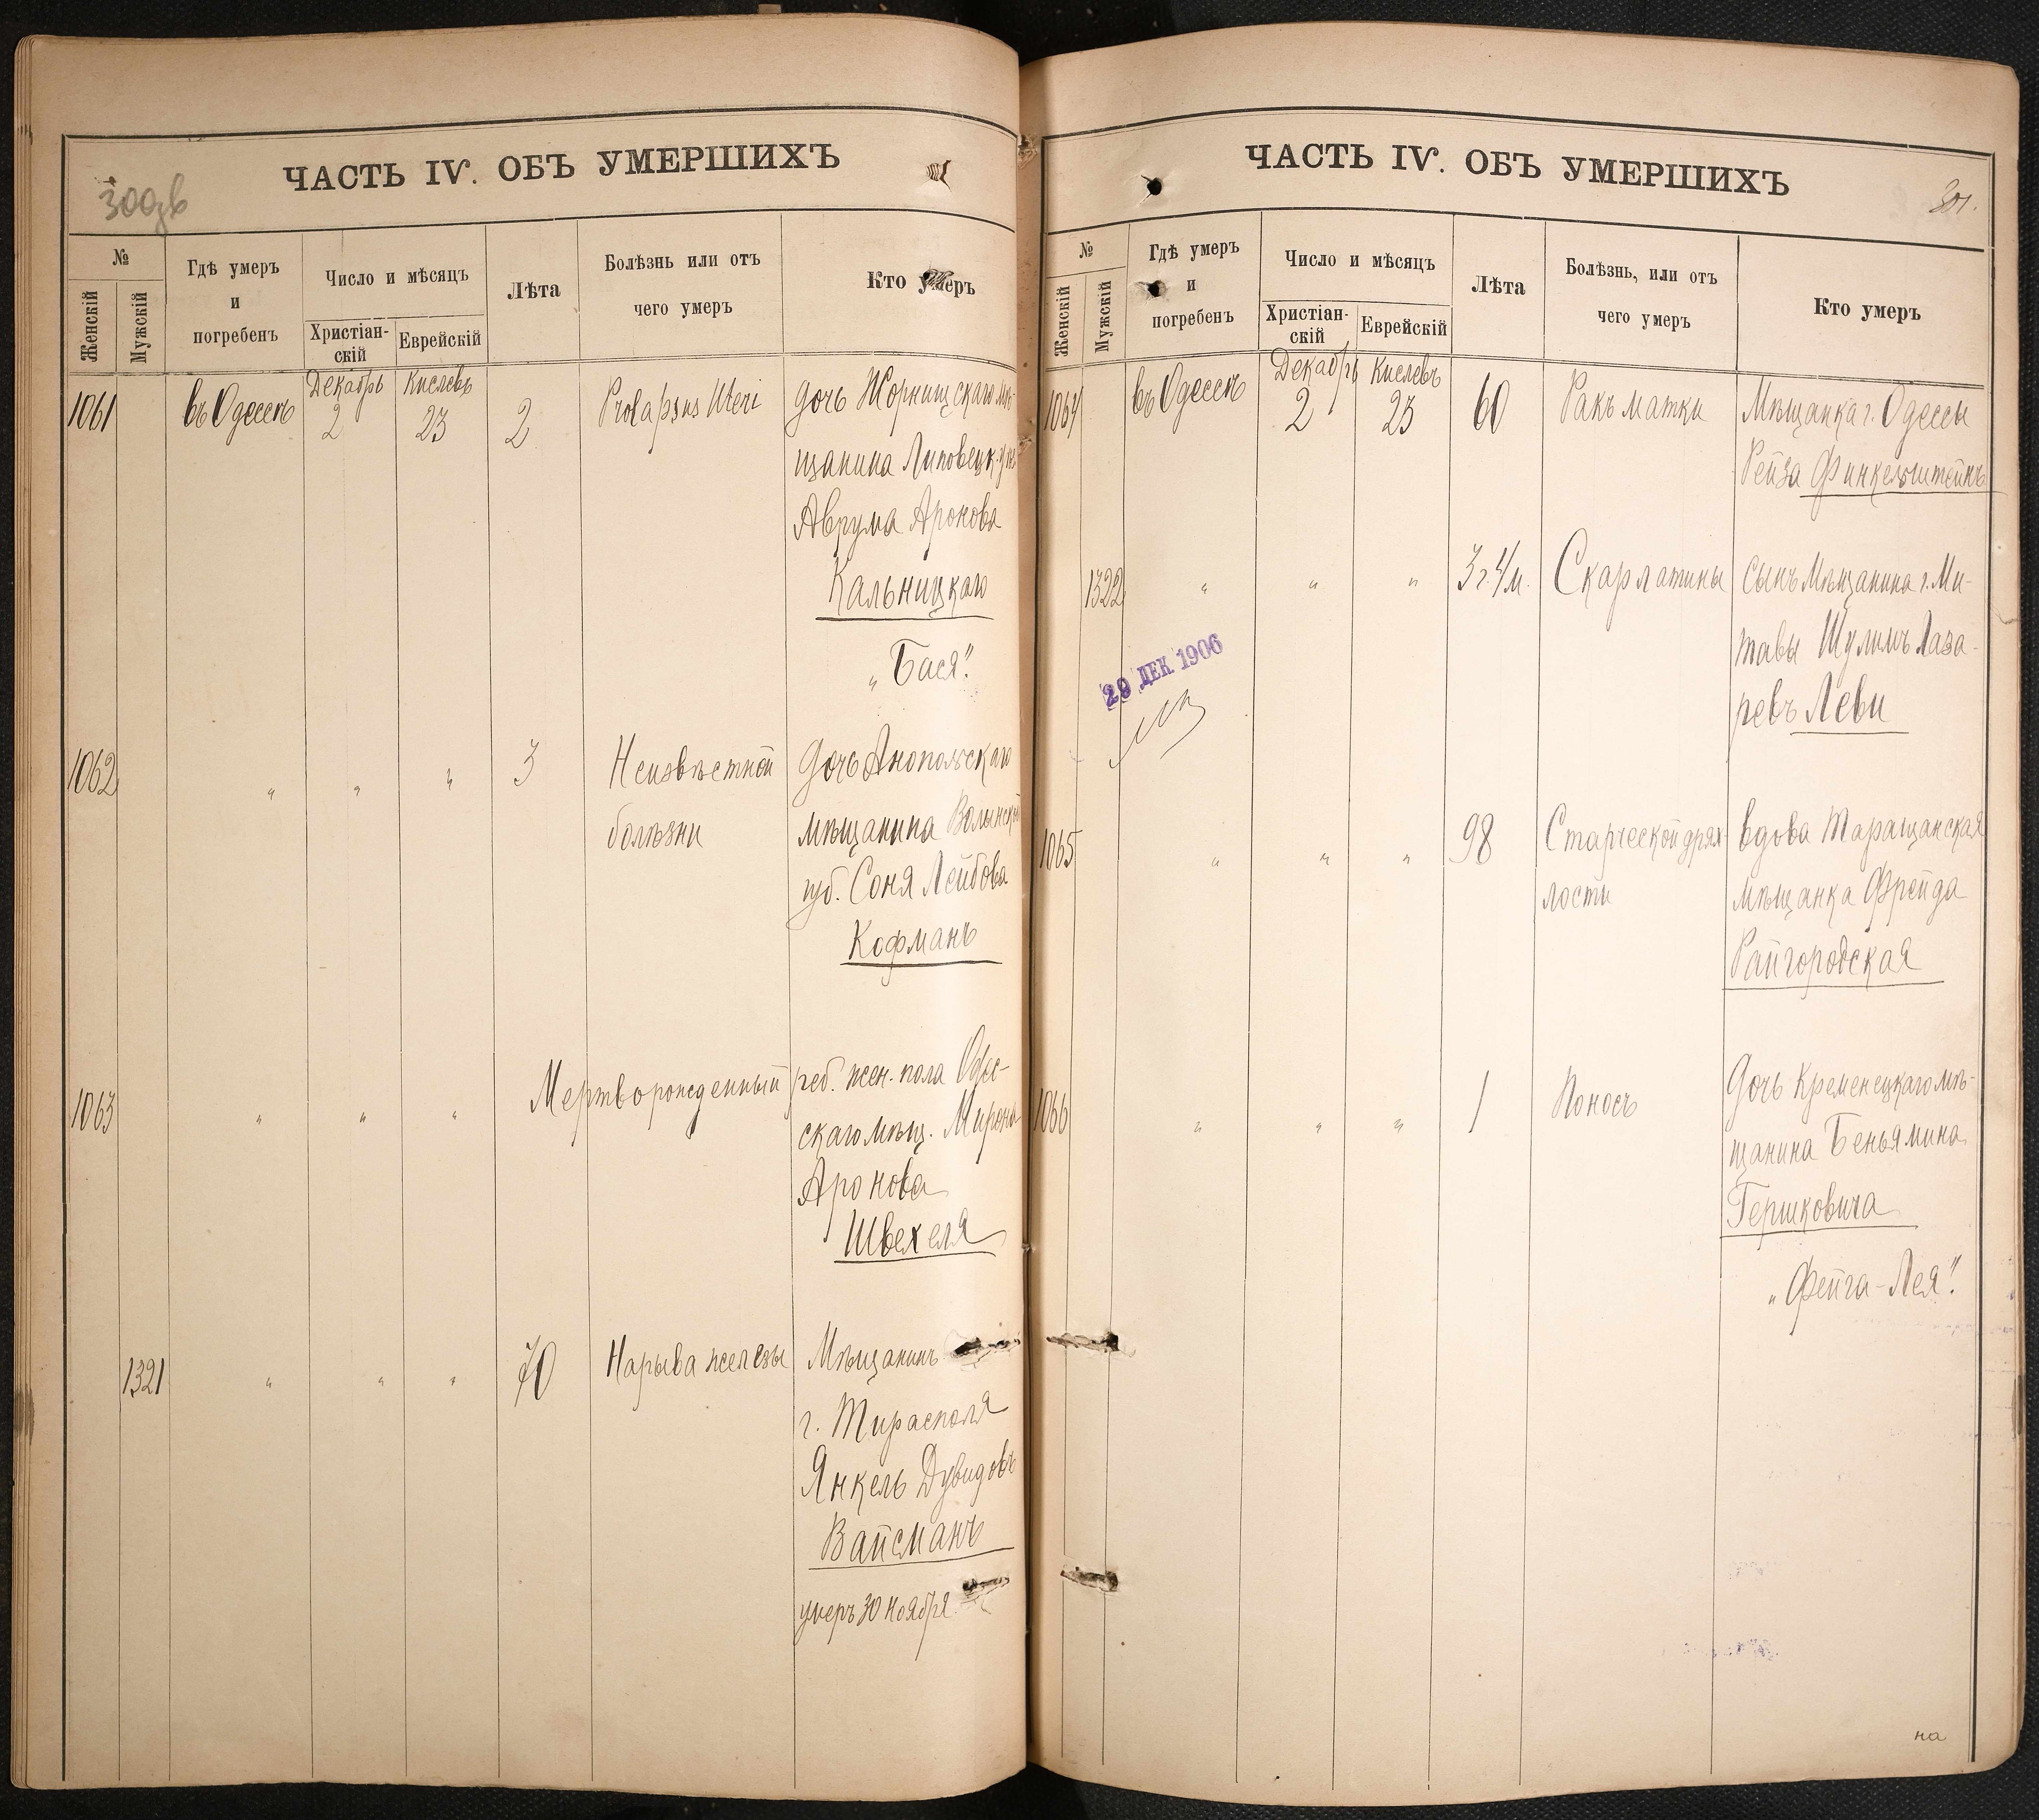 ЧАСТЬ IV. ОБЪ УМЕРШИХЪ
300
№
Женскій
Мужскій
Гдѣ умеръ
и
погребенъ
Число и мѣсяцъ
Христіан-
скій
Еврейскій
Лѣта
Болѣзнь или отъ
чего умеръ
Кто умеръ
1061 въ Одессѣ Декабрь 2 Кислевъ 23 2 Prolapsus Uteri дочь Жорнищскаго мѣ-
щанина Липовецк. у.
Аврума Аронова
Кальницкаго
„Бася".
1062 „ „ „ 3 Неизвѣстной дочь Анопольскаго
болѣзни мѣщанина Волынской
губ. Соня Лейбова
Кофманъ
1063 „ „ „ Мертворожденный реб. жен. пола Одес-
скаго мѣщ. Мирона
Аронова
Швехеля
1321 „ „ „ 70 Нарыва железы Мѣщанинъ
г. Тирасполя
Янкель Дувидовъ
Вайсманъ
умеръ 30 Ноября
ЧАСТЬ IV. ОБЪ УМЕРШИХЪ
301.
№
Женскій
Мужскій
Гдѣ умеръ
и
погребенъ
Число и мѣсяцъ
Христіан-
скій
Еврейскій
Лѣта
Болѣзнь, или отъ
чего умеръ
Кто умеръ
1064 въ Одессѣ Декабрь 2 Кислевъ 23 60 Ракъ матки Мѣщанка г. Одессы
Рейза Финкельштейнъ
1322 „ „ „ 3 г. 4 м. Скарлатины сынъ Мѣщанина г. Ми-
тавы Шулимъ Лаза-
ревъ Леви
29 ДЕК 1906
1065 „ „ „ 98 Старческой дрях- вдова Таращанская
лости мѣщанка Фрейда
Райгородская
1066 „ „ „ 1 Поносъ дочь Кременецкаго мѣ-
щанина Беньямина
Гершковича
„Фейга-Лея".
на